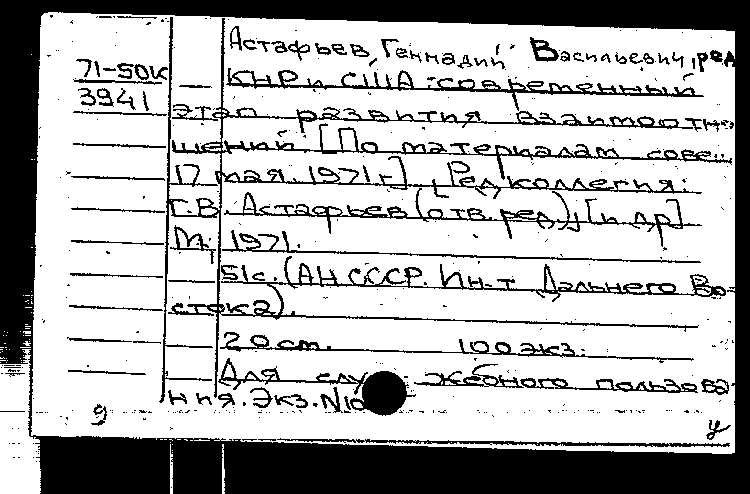 Астафьев, Геннадий Васильевич, ред
71-50к
КНР и США: современный
3941
этап развития взаимоотно
шений. [По материалам совещ.
17 мая. 1971 г.]. [Редколлегия:
Г.В. Астафьев (отв. ред.)], [и др]
М., 1971.
51с. (АН СССР. Ин-т Дальнего Во-
стока).
20 см. 100 экз.
Для служебного пользова
ния. Экз. N10
9
у